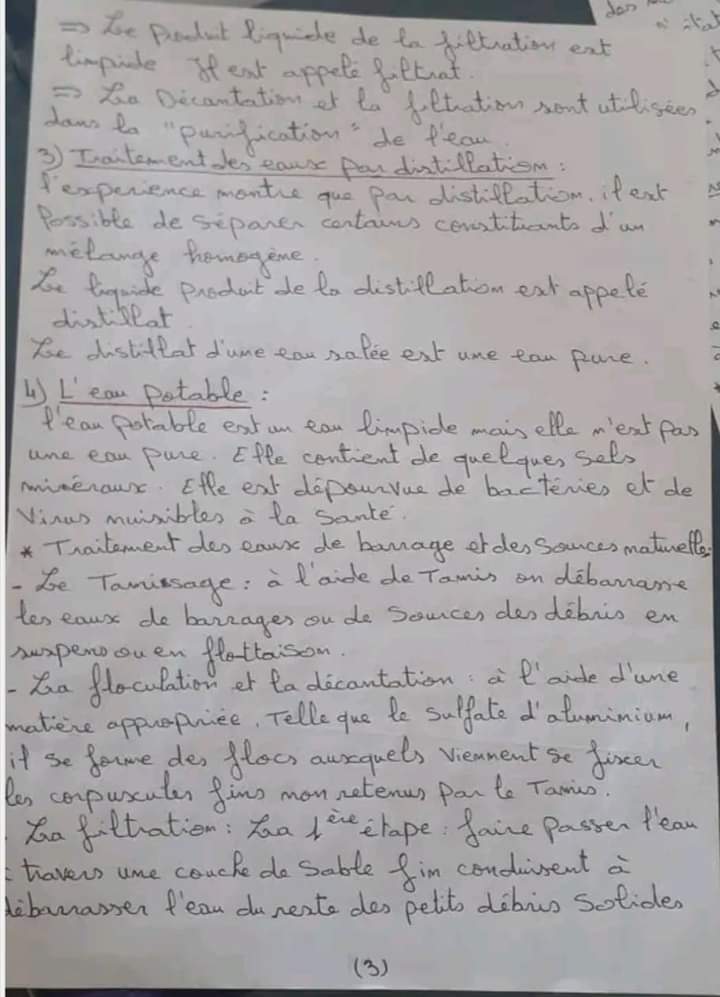 ⇒ Le produit liquide de la filtration est
limpide Il est appelé filtrat.
⇒ La Décantation et la filtration sont utilisées
dans la "purification" de l'eau.
3) Traitement des eaux par distillation :
l'experience montre que par distillation, il est
Possible de séparer certains constituants d'un
mélange homogène.
Le liquide produit de la distillation est appelé
distillat.
Le distillat d'une eau salée est une eau pure.
4) L'eau potable :
l'eau potable est un eau limpide mais elle n'est pas
une eau pure. Elle contient de quelques sels
minéraux. Elle est dépourvue de bactéries et de
Virus nuisibles à la santé.
* Traitement des eaux de barrage et des Sources naturelles:
- Le Tamissage : à l'aide de Tamis on débarrasse
les eaux de barrages ou de Sources des débris en
suspens ou en flottaison.
- La floculation et la décantation : à l'aide d'une
matière appropriée, Telle que le sulfate d'aluminium,
il se forme des flocs auxquels viennent se fixer
les corpuscules fins non retenus par le Tamis.
La filtration : La 1ère étape : faire passer l'eau
travers une couche de Sable fin conduisent à
débarrasser l'eau du reste des petits débris Solides
(3)